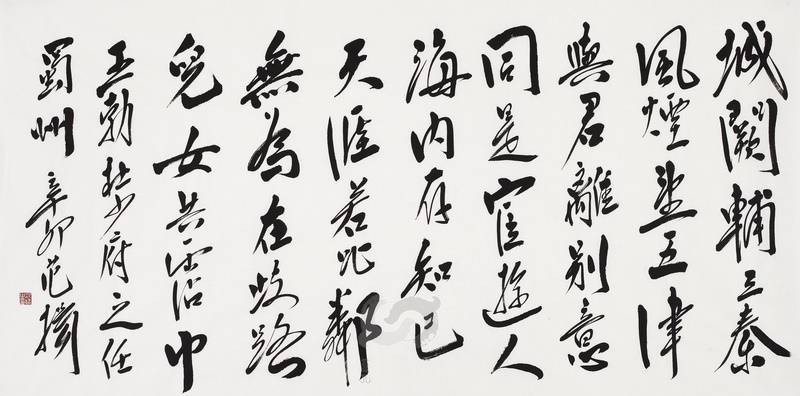 城闕輔三秦
風煙望五津
與君離別意
同是宦遊人
海內存知己
天涯若比鄰
無為在歧路
兒女共霑巾
王勃杜少府之任
蜀州 辛卯范